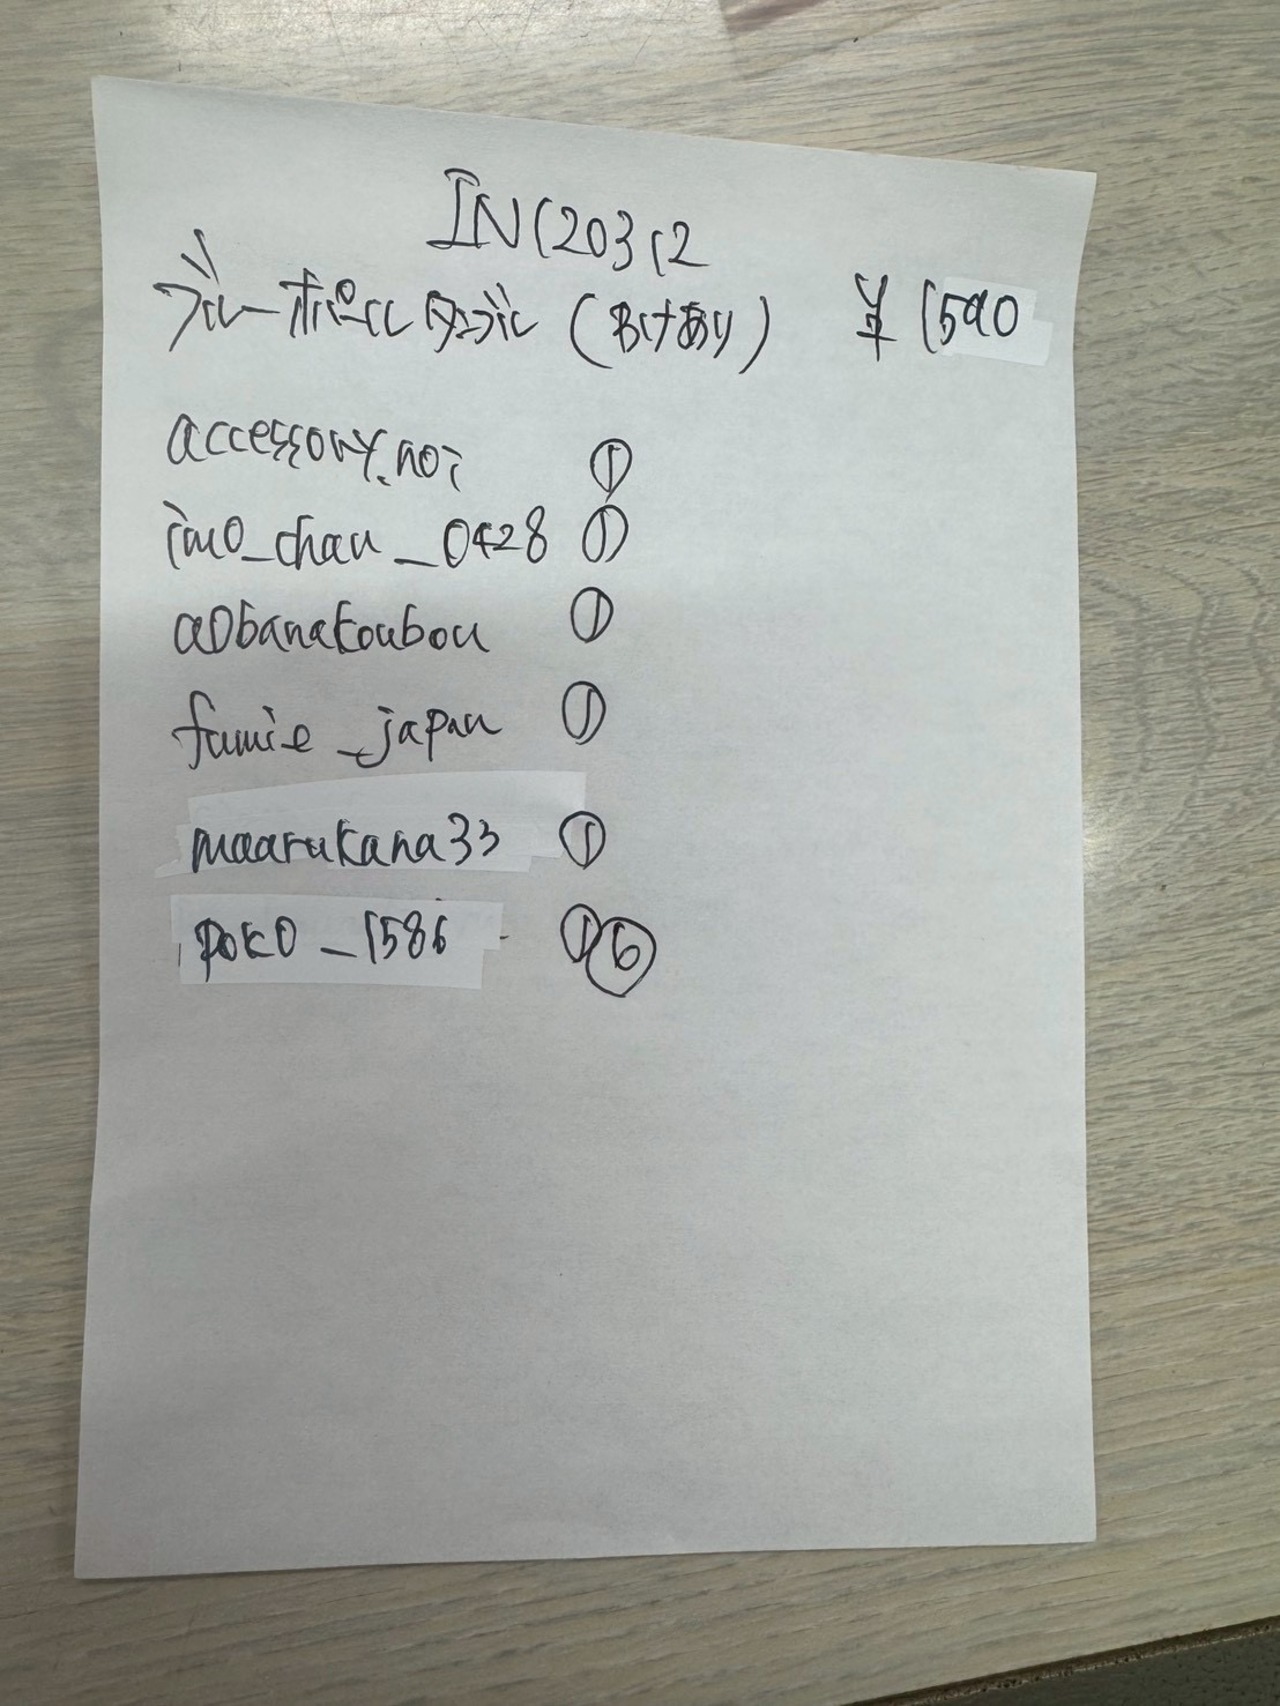 INC20312
ブルーオパールタンブル (おけあり) ¥1590
accessory.noi ①
imo_chan_0428 ①
aobanakoubou ①
fumie_japan ①
maarukana33 ①
poko_1586 ①⑥